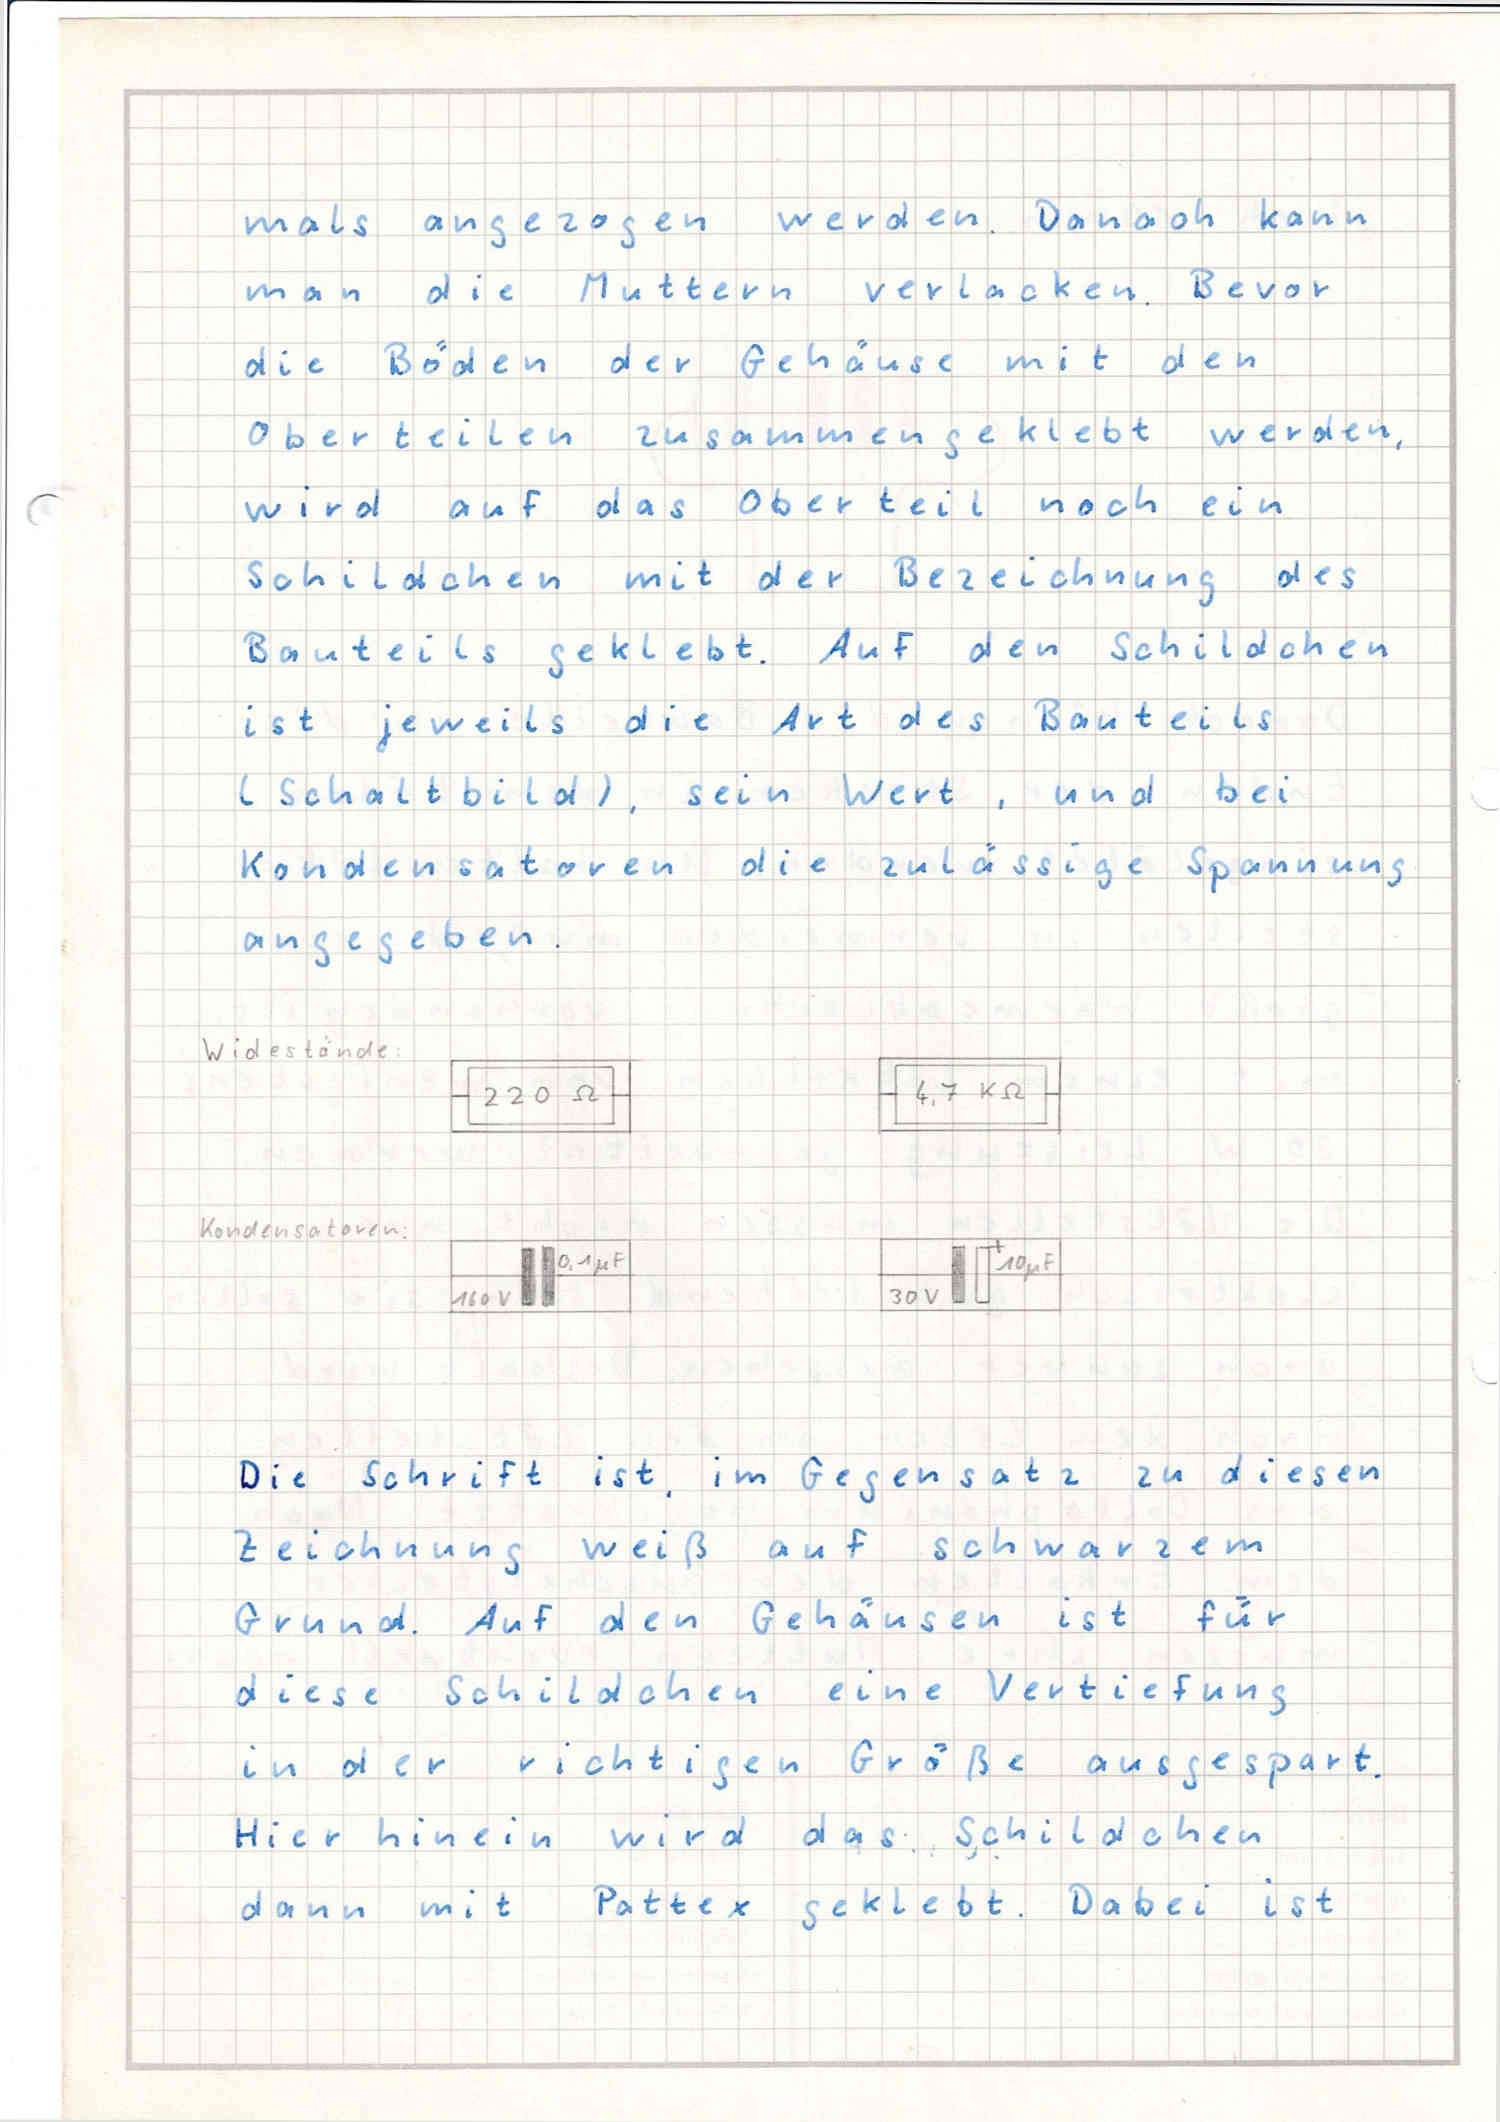 mals angezogen werden. Danach kann
man die Muttern verlacken. Bevor
die Böden der Gehäuse mit den
Oberteilen zusammengeklebt werden,
wird auf das Oberteil noch ein
Schildchen mit der Bezeichnung des
Bauteils geklebt. Auf den Schildchen
ist jeweils die Art des Bauteils
(Schaltbild), sein Wert, und bei
Kondensatoren die zulässige Spannung
angegeben.
Widestände:
220 Ω
4,7 KΩ
Kondensatoren:
0,1µF
160V
+
10µF
30V
Die Schrift ist, im Gegensatz zu diesen
Zeichnung weiß auf schwarzem
Grund. Auf den Gehäusen ist für
diese Schildchen eine Vertiefung
in der richtigen Größe ausgespart.
Hier hinein wird das Schildchen
dann mit Pattex geklebt. Dabei ist